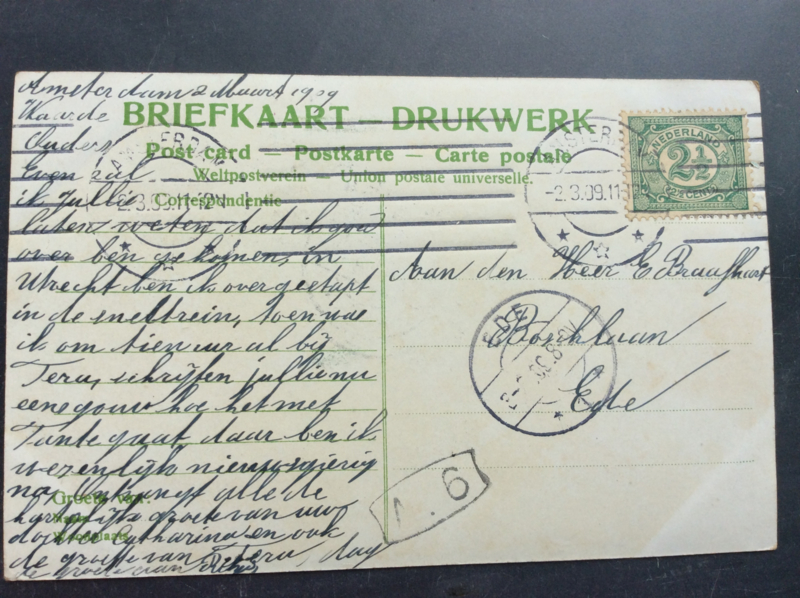 Amsterdam 2 Maart 1909
Waarde
Ouders
Even zal
ik jullie
laten weten dat ik goed
over ben gekomen, in
Utrecht ben ik overgestapt
in de sneltrein, toen was
ik om tien uur al bij
Teru, schrijfen jullie nu
eens gouw hoe het met
Tante gaat daar ben ik
wezenlijk nieuwsgierig
na. Ontvangt alle de
hartelijke groete van uw
dochter Catharina en ook
de groete van Teru, dag
de groete van
BRIEFKAART – DRUKWERK
Post card – Postkarte – Carte postale
Weltpostverein – Union postale universelle.
Correspondentie
Groeten van:
Naam
Woonplaats
AMSTERDAM
2.3.09.11-12V
AMSTERDAM
2.3.09.11-12V
NEDERLAND
2½
2½ CENT
Aan den Heer E Braafhart
Ede
EDE
N. 6